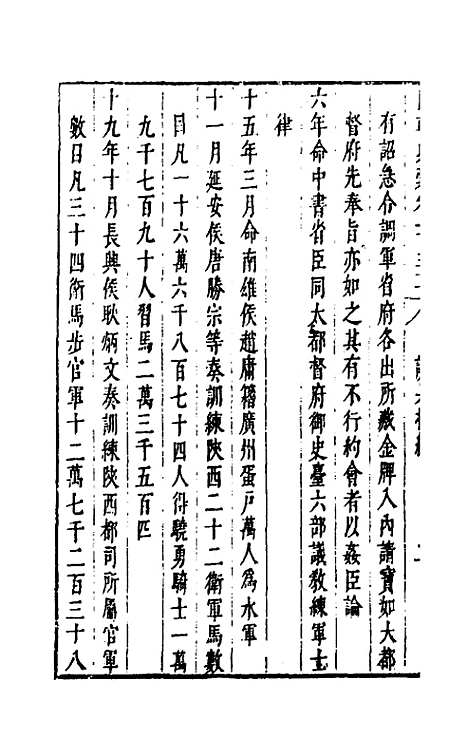 有詔急令調軍省府各出所藏金牌入內請寶如大都
督府先奉旨亦如之其有不行約會者以姦臣論
六年命中書省臣同大都督府御史臺六部議教練軍士
律
十五年三月命南雄侯趙庸籍廣州蛋戶萬人為水軍
十一月延安侯唐勝宗等奏訓練陝西二十二衛軍馬數
目凡一十六萬六千八百七十四人得驍勇騎士一萬
九千七百九十人習馬二萬三千五百匹
十九年十月長興侯耿炳文奏訓練陝西都司所屬官軍
數目凡三十四衛馬步官軍十二萬七千二百三十八